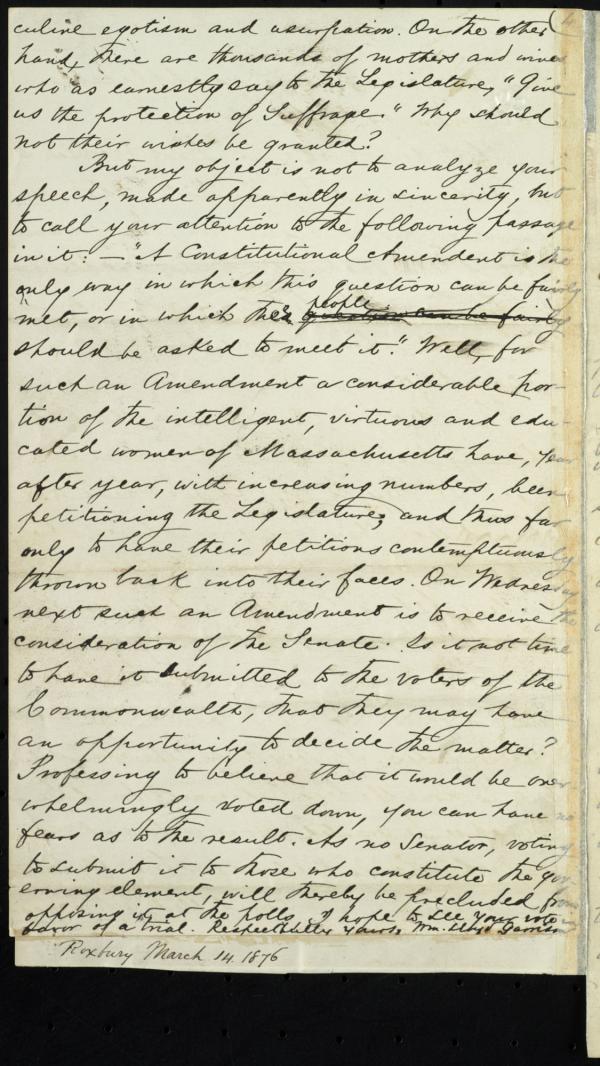 culine egotism and usurpation. On the other
hand, there are thousands of mothers and wives
who as earnestly say to the Legislature, "Give
us the protection of Suffrage." Why should
not their wishes be granted?
But my object is not to analyze your
speech, made apparently in sincerity, but
to call your attention to the following passage
in it: — "A Constitutional Amendent is the
only way in which this question can be fairly
people
met, or in which the question can be fairly
should be asked to meet it." Well, for
such an Amendment a considerable por-
tion of the intelligent, virtuous and edu-
cated women of Massachusetts have, year
after year, with increasing numbers, been
petitioning the Legislature, and thus far
only to have their petitions contemptuously
thrown back into their faces. On Wednesday
next such an Amendment is to receive the
consideration of the Senate. Is it not time
to have it submitted to the voters of the
Commonwealth, that they may have
an opportunity to decide the matter?
Professing to believe that it would be over
whelmingly voted down, you can have no
fears as to the result. As no Senator, voting
to submit it to those who constitute the gov
erning element, will thereby be precluded from
opposing it at the polls, I hope to see your vote in
favor of a trial. Respectfully yours, Wm. Lloyd Garrison
Roxbury March 14. 1876